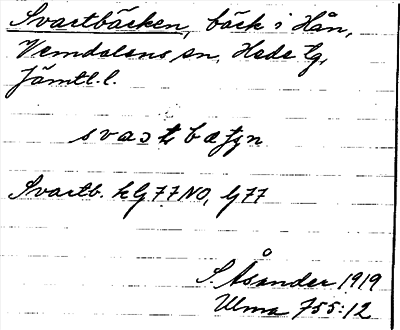 Svartbäcken, bäck i Hån,
Vemdalens sn, Hede tg,
Jämtl. l.
Svartb. kG77NO, G77
S. Åsander 1919
Ulma 755:12